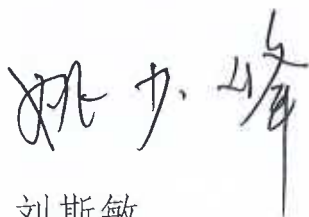 姚少峰
刘斯敏